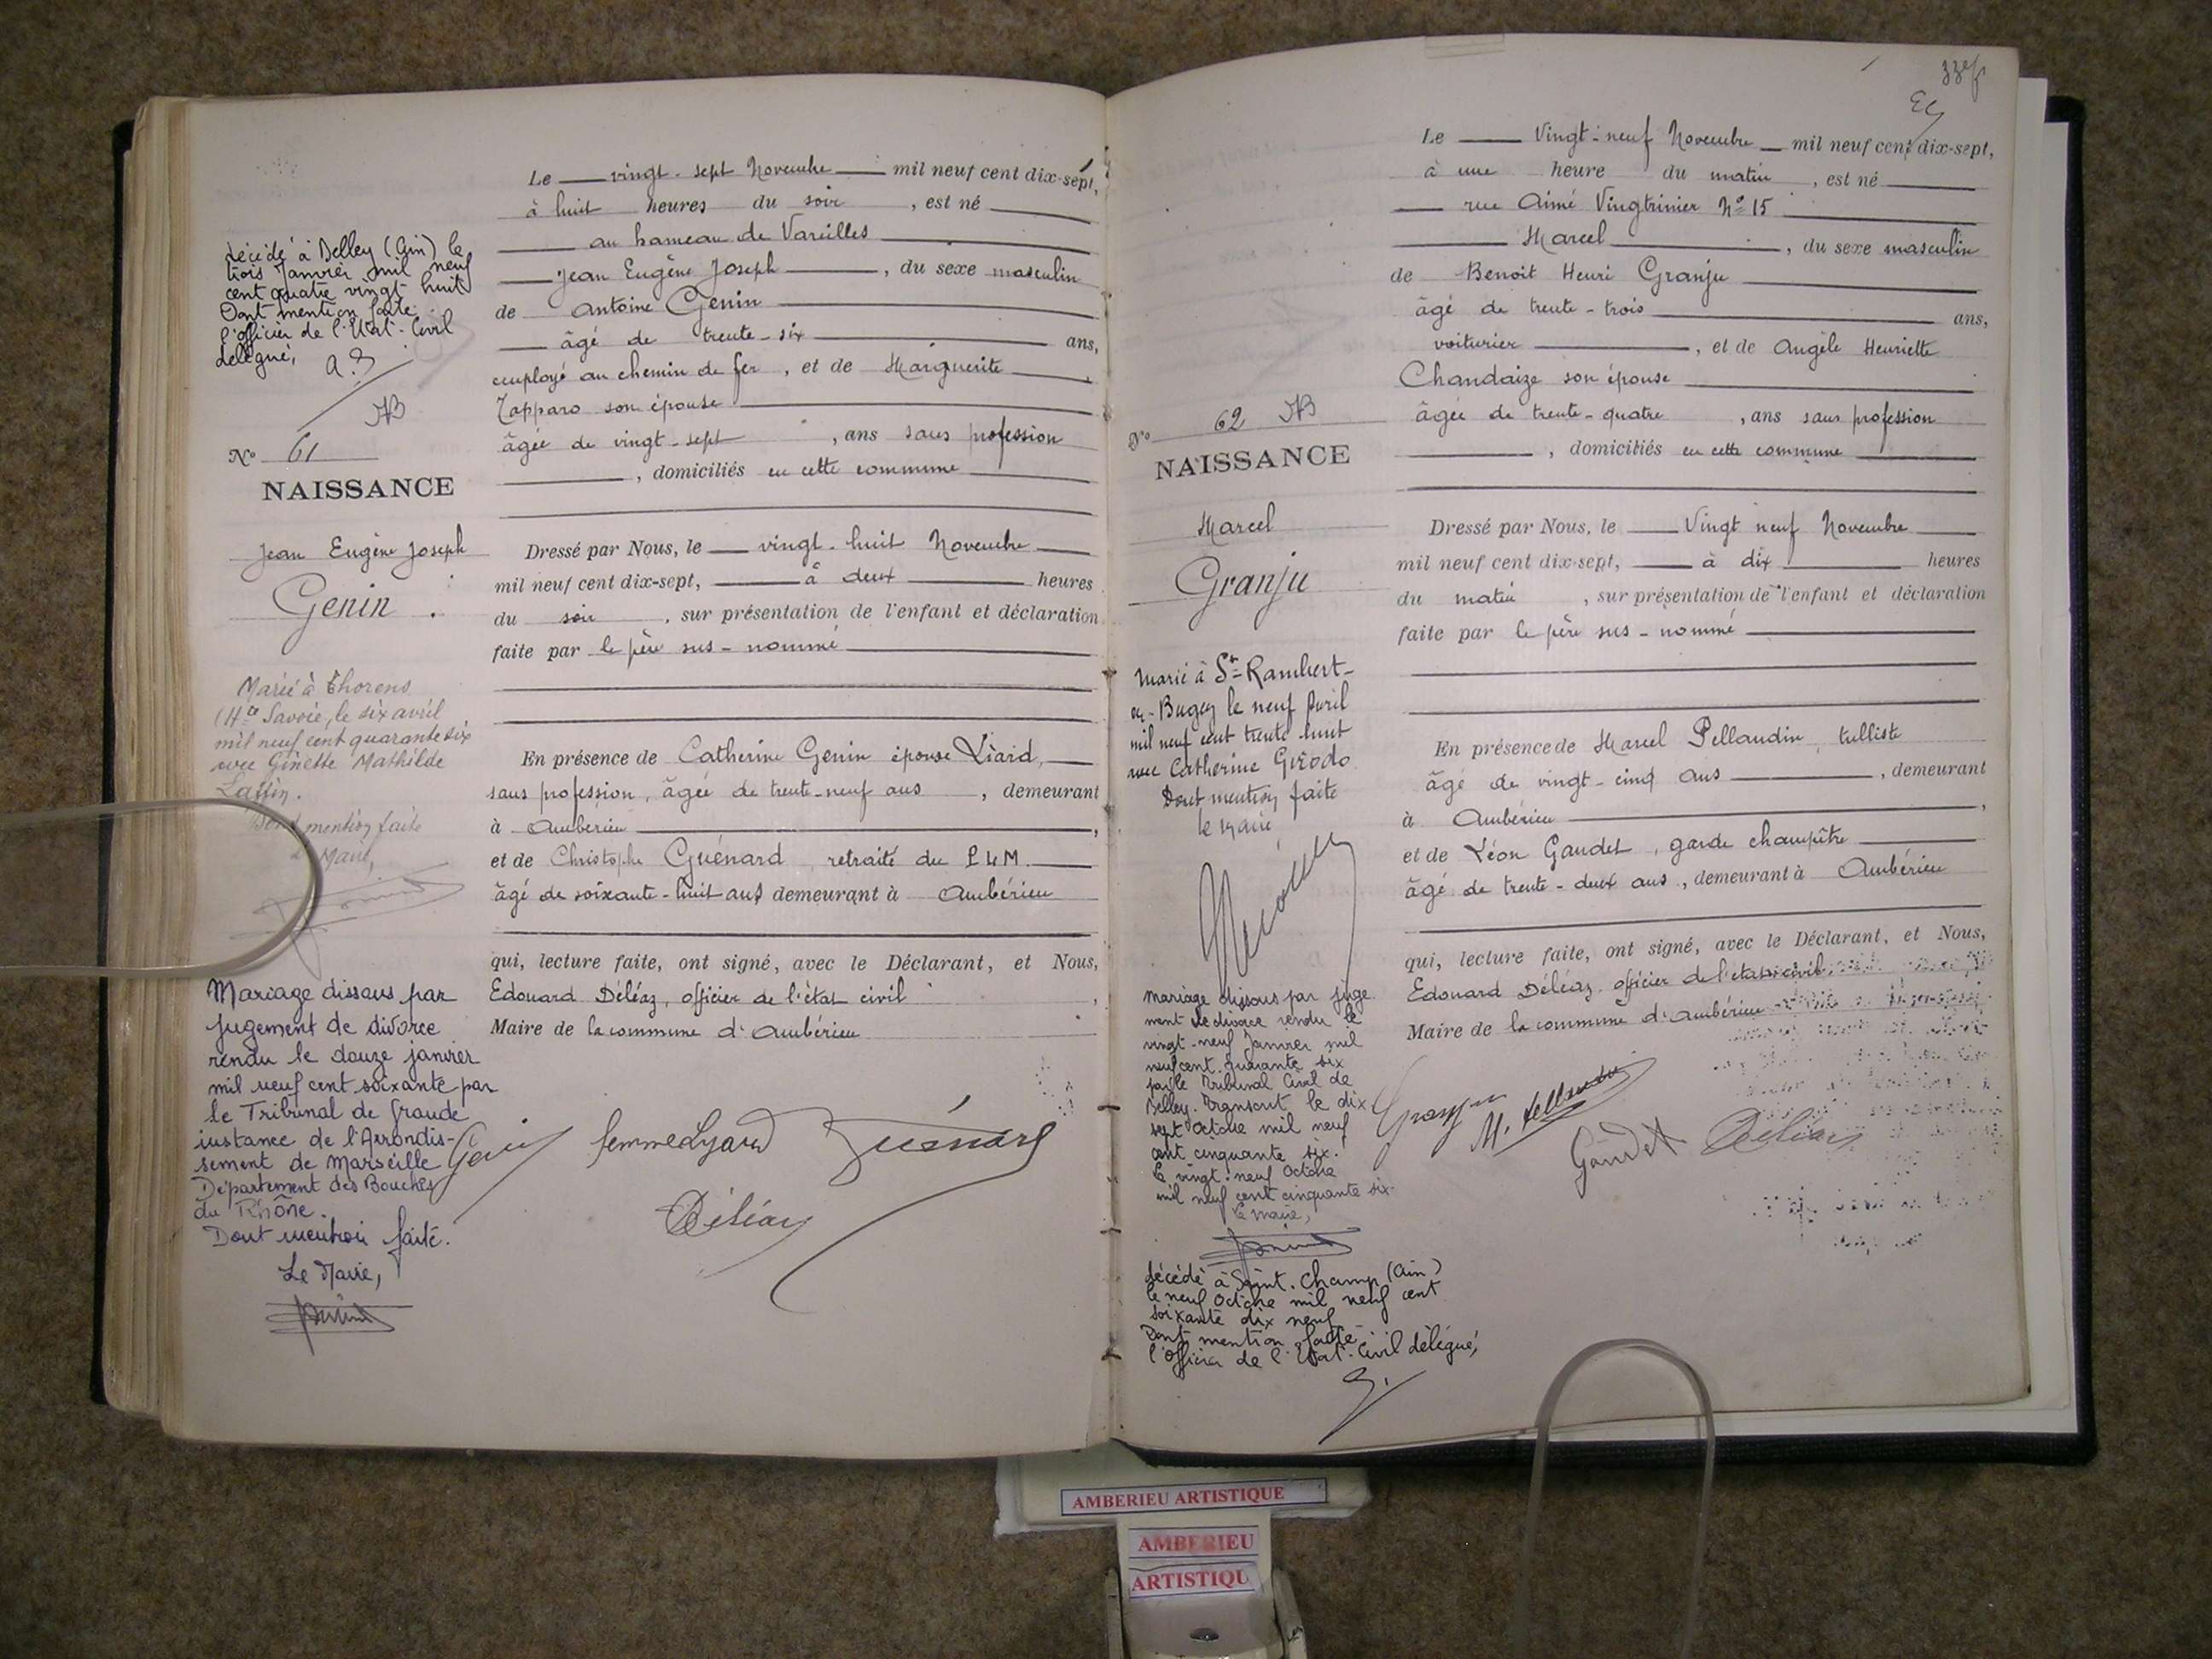 Le vingt-sept Novembre mil neuf cent dix-sept,
à huit heures du soir, est né
au hameau de Vareilles
Jean Eugène Joseph, du sexe masculin
de Antoine Genin
âgé de trente-six ans,
employé au chemin de fer, et de Marguerite
Zapparo son épouse
âgée de vingt-sept, ans sans profession
, domiciliés en cette commune
Dressé par Nous, le vingt-huit Novembre
mil neuf cent dix-sept, à deux heures
du soir, sur présentation de l'enfant et déclaration
faite par le père sus-nommé
En présence de Catherine Genin épouse Liard,
sans profession, âgée de trente-neuf ans, demeurant
à Ambérieu,
et de Christophe Guénard retraité du PLM
âgé de soixante-huit ans demeurant à Ambérieu
qui, lecture faite, ont signé, avec le Déclarant, et Nous,
Edouard Déléaz, officier de l'état civil,
Maire de la commune d'Ambérieu
Genin femme Lyard Guénard
Déléaz
décédé à Belley (Ain) le
trois Janvier mil neuf
cent quatre vingt huit
Dont mention faite
l'officier de l'Etat-Civil
délégué,
N° 61
NAISSANCE
Jean Eugène Joseph
Genin.
Marié à Thorens
(Hte Savoie, le six avril
mil neuf cent quarante six
avec Ginette Mathilde
Dont mention faite
le Maire,
Mariage dissous par
jugement de divorce
rendu le douze janvier
mil neuf cent soixante par
le Tribunal de Grande
instance de l'Arrondis-
sement de Marseille
Département des Bouches
du Rhône.
Dont mention faite.
Le Maire,
Le Vingt-neuf Novembre mil neuf cent dix-sept,
à une heure du matin, est né
rue Aimé Vingtrinier N° 15
Marcel, du sexe masculin
de Benoit Henri Granju
âgé de trente-trois ans,
voiturier, et de Angèle Henriette
Chandaize son épouse
âgée de trente-quatre, ans sans profession
, domiciliés en cette commune
Dressé par Nous, le Vingt neuf Novembre
mil neuf cent dix-sept, à dix heures
du matin, sur présentation de l'enfant et déclaration
faite par le père sus-nommé
En présence de Marcel Pellaudin, tulliste
âgé de vingt-cinq ans, demeurant
à Ambérieu,
et de Léon Gaudet, garde champêtre
âgé de trente-deux ans, demeurant à Ambérieu
qui, lecture faite, ont signé, avec le Déclarant, et Nous,
Edouard Déléaz officier de l'état civil
Maire de la commune d'Ambérieu
Granju M. Pellaudin
Gaudet Déléaz
N° 62
NAISSANCE
Marcel
Granju
Marié à St-Rambert-
en-Bugey le neuf Avril
mil neuf cent trente huit
avec Catherine Girodo
Dont mention faite
le Maire
Mariage dissous par juge
ment de divorce rendu le
vingt-neuf Janvier mil
neuf cent quarante six
par le Tribunal Civil de
Belley. Transcrit le dix
sept Octobre mil neuf
cent cinquante six.
Le vingt-neuf Octobre
mil neuf cent cinquante six.
Le Maire,
décédé à Saint-Champ (Ain)
le neuf Octobre mil neuf cent
soixante dix neuf
Dont mention faite
l'Officier de l'Etat-Civil délégué,
AMBERIEU ARTISTIQUE
AMBERIEU
ARTISTIQU